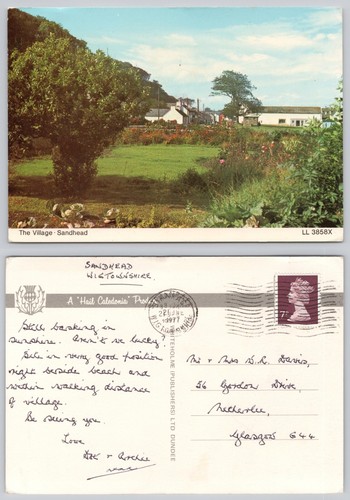 The Village · Sandhead
LL 3858X
SANDHEAD
WIGTOWNSHIRE.
A 'Hail Caledonia' Product
Still basking in
sunshine. Aren't we lucky?
Site in very good position
right beside beach and
within walking distance
of village.
Be seeing you.
Love
Archie
WHITEHOLME (PUBLISHERS) LTD DUNDEE
1977
7P
Mr & Mrs D.R. Davis,
56 Gordon Drive,
Netherlee,
Glasgow G44